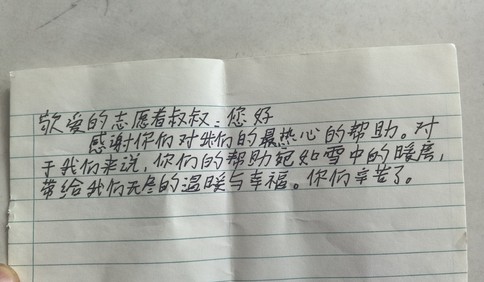 敬爱的志愿者叔叔：您好
感谢你们对我们的最热心的帮助。对
于我们来说，你们的帮助宛如雪中的暖房，
带给我们无尽的温暖与幸福。你们辛苦了。